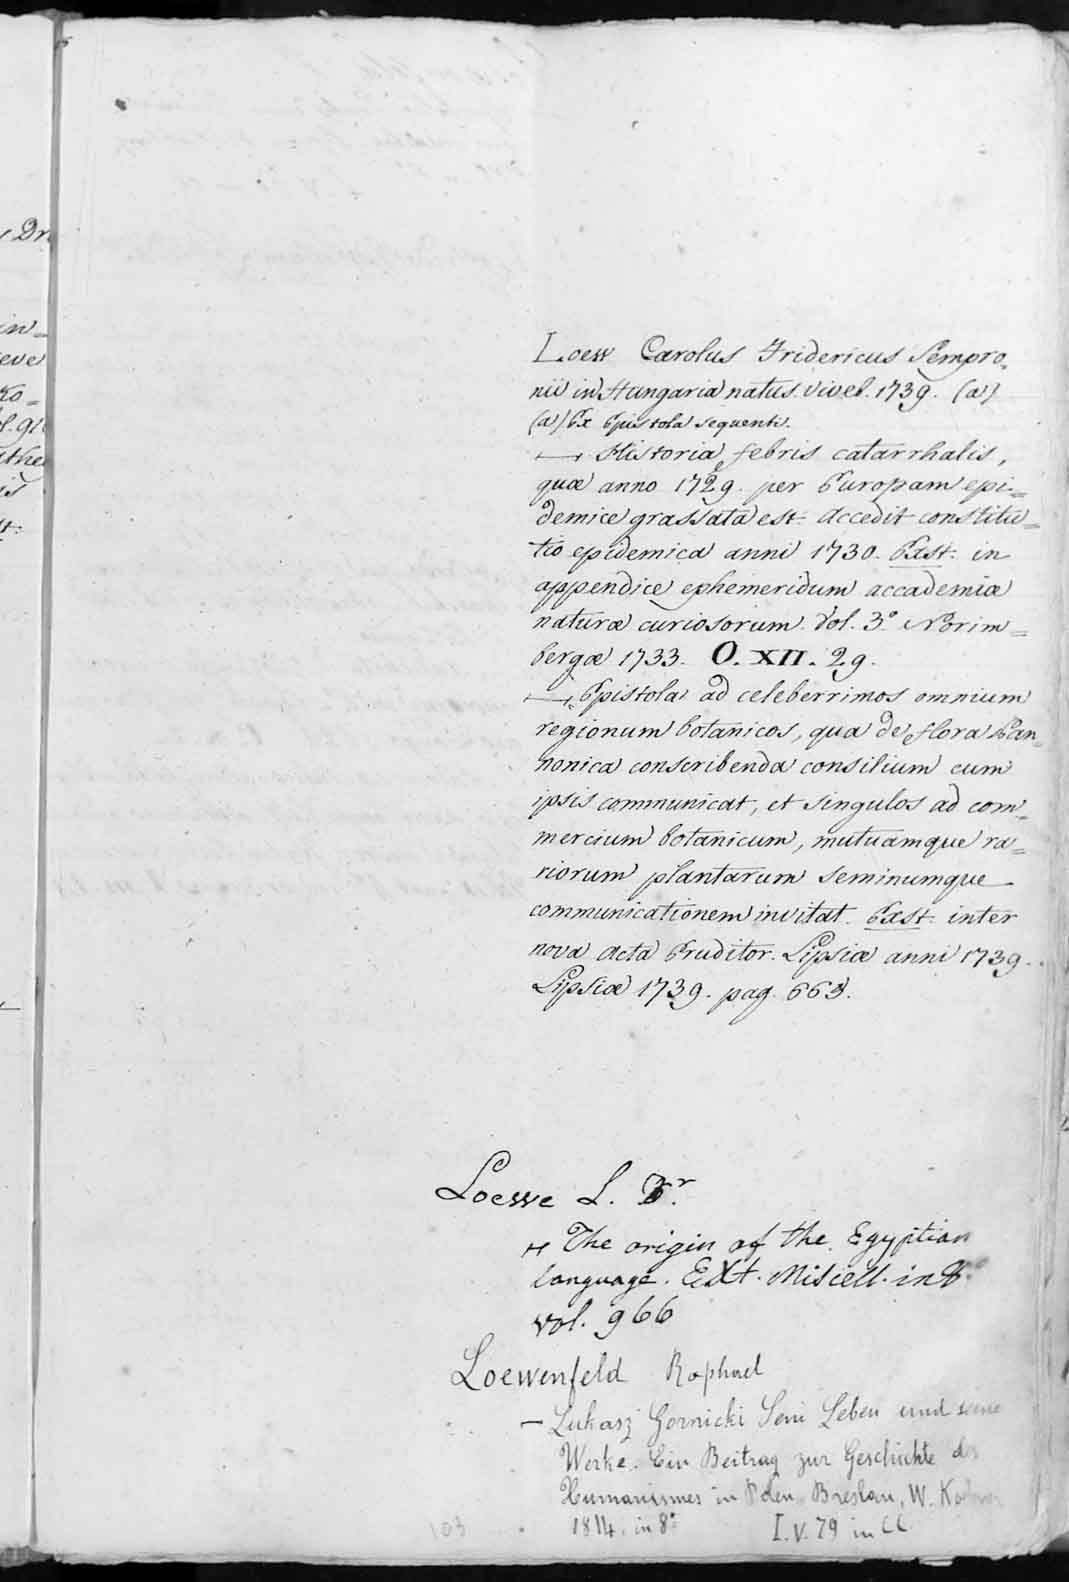 Loew Carolus Fridericus Sempro-
nii in Hungaria natus. viveb. 1739. (a)
(a) Ex Epistola sequenti.
— Historia febris catarrhalis,
quæ anno 1729. per Europam epi=
demice grassata est. Accedit constitu=
tio epidemica anni 1730. Exst. in
appendice ephemeridum accademiæ
naturæ curiosorum. Vol. 3.º Norim=
bergæ 1733. O. XII. 29.
— Epistola ad celeberrimos omnium
regionum botanicos, qua de flora Pan=
nonica conscribenda consilium cum
ipsis communicat, et singulos ad com=
mercium botanicum, mutuamque ra=
riorum plantarum seminumque
communicationem invitat. Exst. inter
nova Acta Eruditor. Lipsiæ anni 1739.
Lipsiæ 1739. pag. 663.
Loewe L. Dr.
— The origin of the Egyptian
language. Ext. Miscell. in 8.º
vol. 966
Loewenfeld Raphael
— Lukasz Gornicki Sein Leben und seine
Werke. Ein Beitrag zur Geschichte des
Humanismes in Polen. Breslau, W.
in 8.º I. V. 79 in CC
103